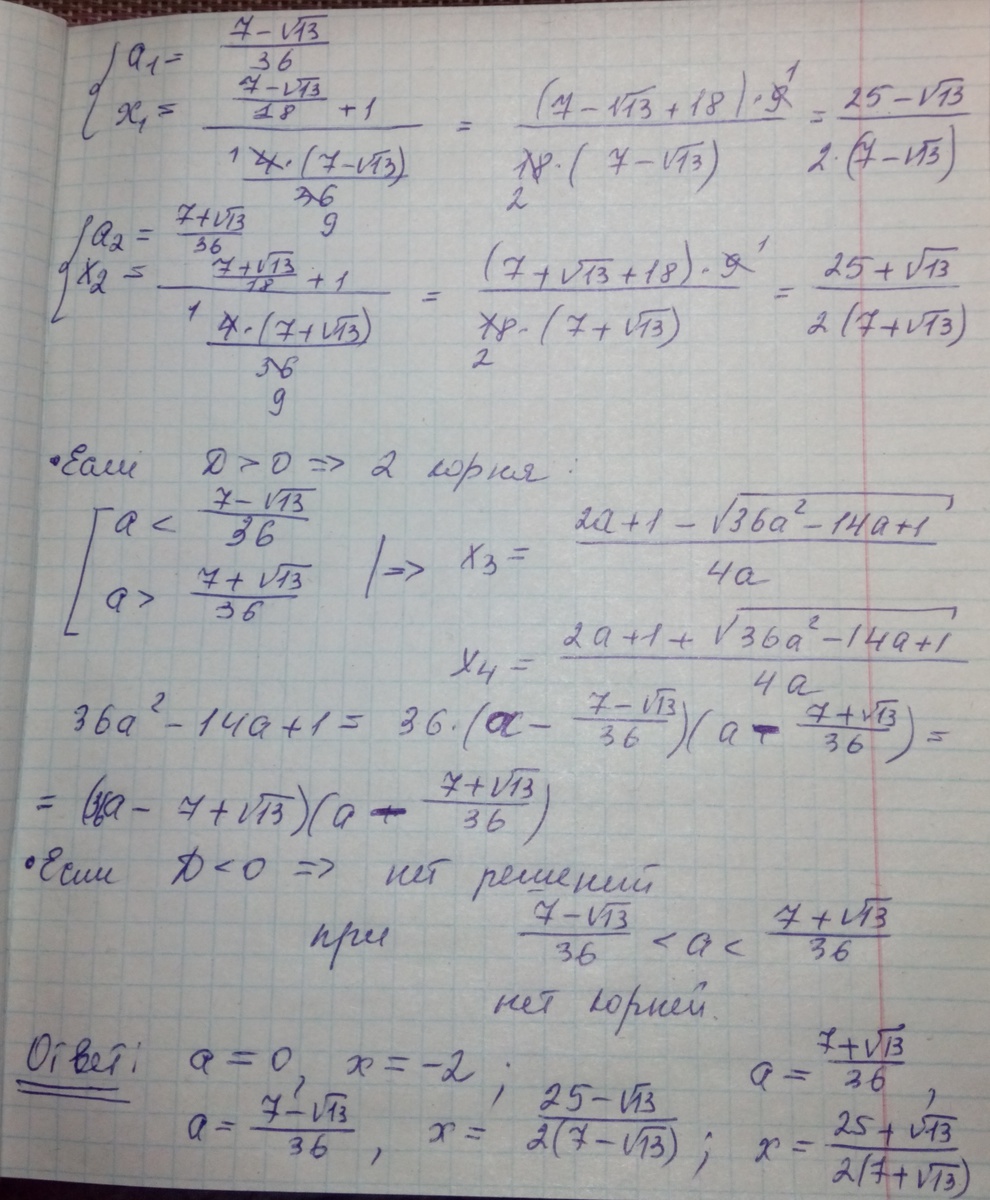 { a₁ = (7-√13)/36
x₁ = ((7-√13)/18 + 1) / (4·(7-√13)/36) = ((7-√13+18)·9)/(18·(7-√13)) = (25-√13)/(2·(7-√13))
1 9 1 2
{ a₂ = (7+√13)/36
x₂ = ((7+√13)/18 + 1) / (4·(7+√13)/36) = ((7+√13+18)·9)/(18·(7+√13)) = (25+√13)/(2(7+√13))
1 9 1 2
• Если D > 0 => 2 корня:
[ a < (7-√13)/36
a > (7+√13)/36 | => x₃ = (2a+1-√(36a²-14a+1))/(4a)
x₄ = (2a+1+√(36a²-14a+1))/(4a)
36a²-14a+1 = 36·(a - (7-√13)/36)(a - (7+√13)/36) =
= (36a - 7+√13)(a - (7+√13)/36)
• Если D < 0 => нет решений
при (7-√13)/36 < a < (7+√13)/36
нет корней.
Ответ: a = 0, x = -2; a = (7+√13)/36,
a = (7-√13)/36, x = (25-√13)/(2(7-√13)); x = (25+√13)/(2(7+√13))